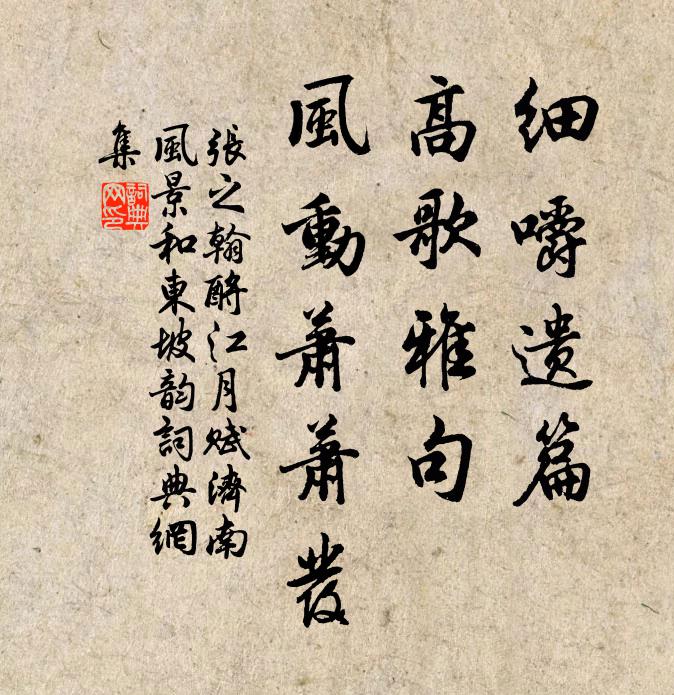 細嚼遺篇
高歌雅句
風動蕭蕭發
張之翰酹江月賦濟南
風景和東坡韵詞典網
集
詞典
网印